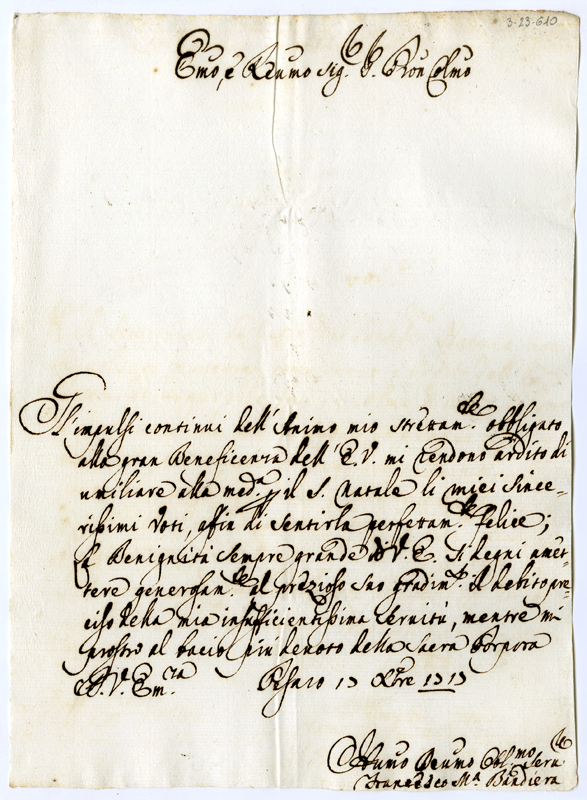 3-23-610
Emo, e Reumo Sig.r P.ron Colmo
Gl'impulsi continui dell'Animo mio strettam.te obbligato
alla gran Beneficenza dell'E.V. mi rendono ardito di
umiliare alla med.a p il S. Natale li miei since-
rissimi Voti, affin di sentirla perfettam.te felice;
La Benignità sempre grande di V. E. si degni amet-
tere generosam.te al prezioso suo gradim.to il debito pre-
ciso della mia insufficientissima servitù, mentre mi
prostro al bacio più devoto della Sacra Porpora
di V. Em.za Pesaro 13 Xbre
Humo Deumo Obl.mo Seru.
Francesco M.a Bandiera